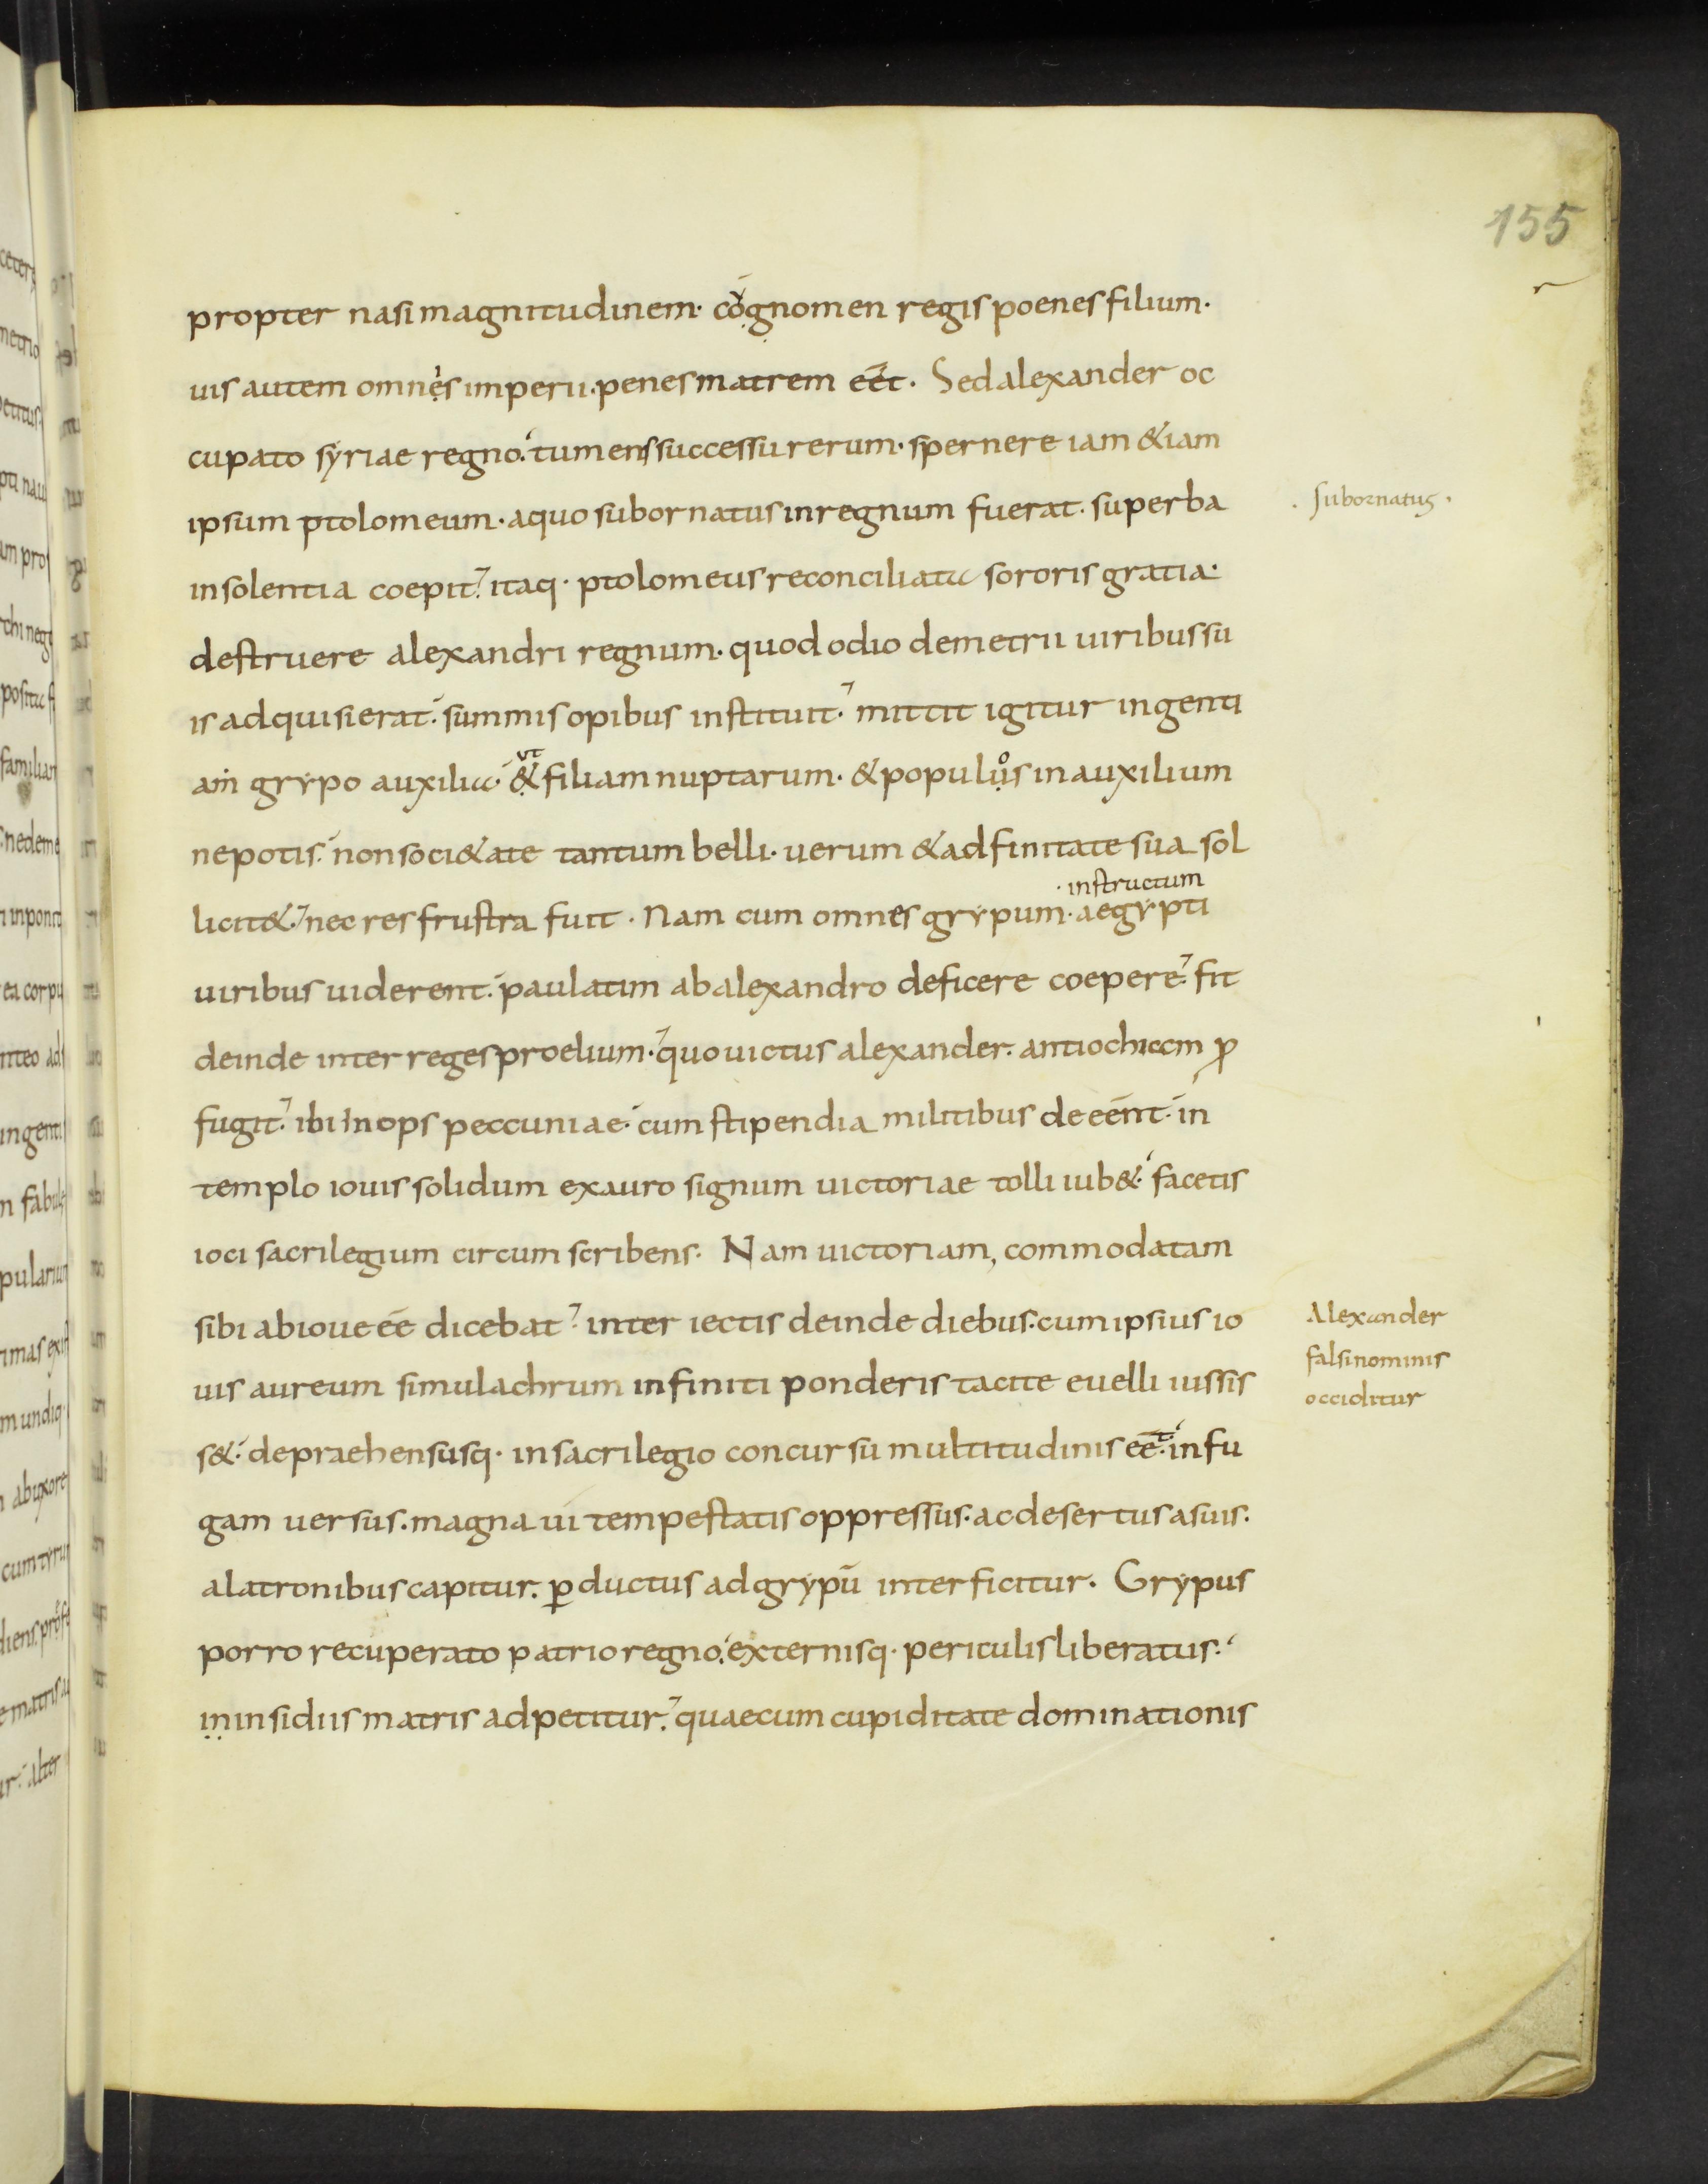 155
propter nasi magnitudinem· cognomen regis poenes filium·
uis autem omnes imperii· penes matrem eēt· Sed alexander oc
cupato syriae regno· tumens successu rerum· spernere iam & iam
ipsum ptolomeum· a quo subornatus in regnum fuerat· superba
· subornatus ·
insolentia coepit· itaq· ptolomeus reconciliata sororis gratia·
destruere alexandri regnum· quod odio demetrii uiribus su
is adquisierat· summis opibus instituit· mittit igitur ingenti
am grypo auxilia· & filiam nuptarum· & populus in auxilium
ut
o
nepotis· non soci&ate tantum belli· uerum & adfinitate sua sol
· instructum
licit&· nec res frustra fuit· Nam cum omnes grypum· aegypti
uiribus uiderent· paulatim ab alexandro deficere coepere· fit
deinde inter reges proelium· quo uictus alexander· antiochiam ꝓ
fugit· ibi inops peccuniae· cum stipendia militibus deeēnt· in
templo iouis solidum ex auro signum uictoriae tolli iub&· facetis
ioci sacrilegium circumscribens· Nam uictoriam, commodatam
sibi ab ioue eē dicebat· inter iectis deinde diebus· cum ipsius io
Alexander
falsi nominis
occiditur
uis aureum simulachrum infiniti ponderis tacite euelli iussis
s&· depraehensusq· in sacrilegio concursu multitudinis eēt· in fu
gam uersus· magna ui tempestatis oppressus· ac desertus a suis·
a latronibus capitur· ꝑductus ad grypū interficitur· Grypus
porro recuperato patrio regno· externisq· periculis liberatus·
in insidiis matris adpetitur· quae cum cupiditate dominationis